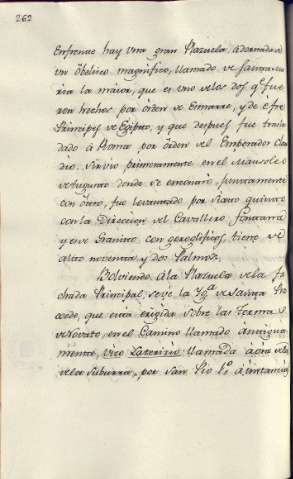 262
enfrente hay una gran Plazuela, adornada de
un Obelisco magnifico, llamado de Santa Ma-
ria la maior, que es uno de los dos q.e fue
ron hechos por órden de Emarre, y de efre
Principes de Egipto, y que despues fue trasla
dado á Roma por órden del Emperador Clau
dio. sirvio primeramente en el Mausoleo
de Augusto donde se encontró, juntamente
con ótro, fue levantado por Sixto quinto
con la Direccion del Cavallero Fontana
y es de Granito con geroglificos, tiene de
alto noventa y dos Palmos.
Bolviendo á la Plazuela de la fa
chada Principal, se ve la Yg.a de Santa Pra
cedo, que está erigida sobre las Termas
de Novato, en el Camino llamado Antigua
mente, Vico Latericio llamada aora
de la Suburra, por San Pio P.o á instancias